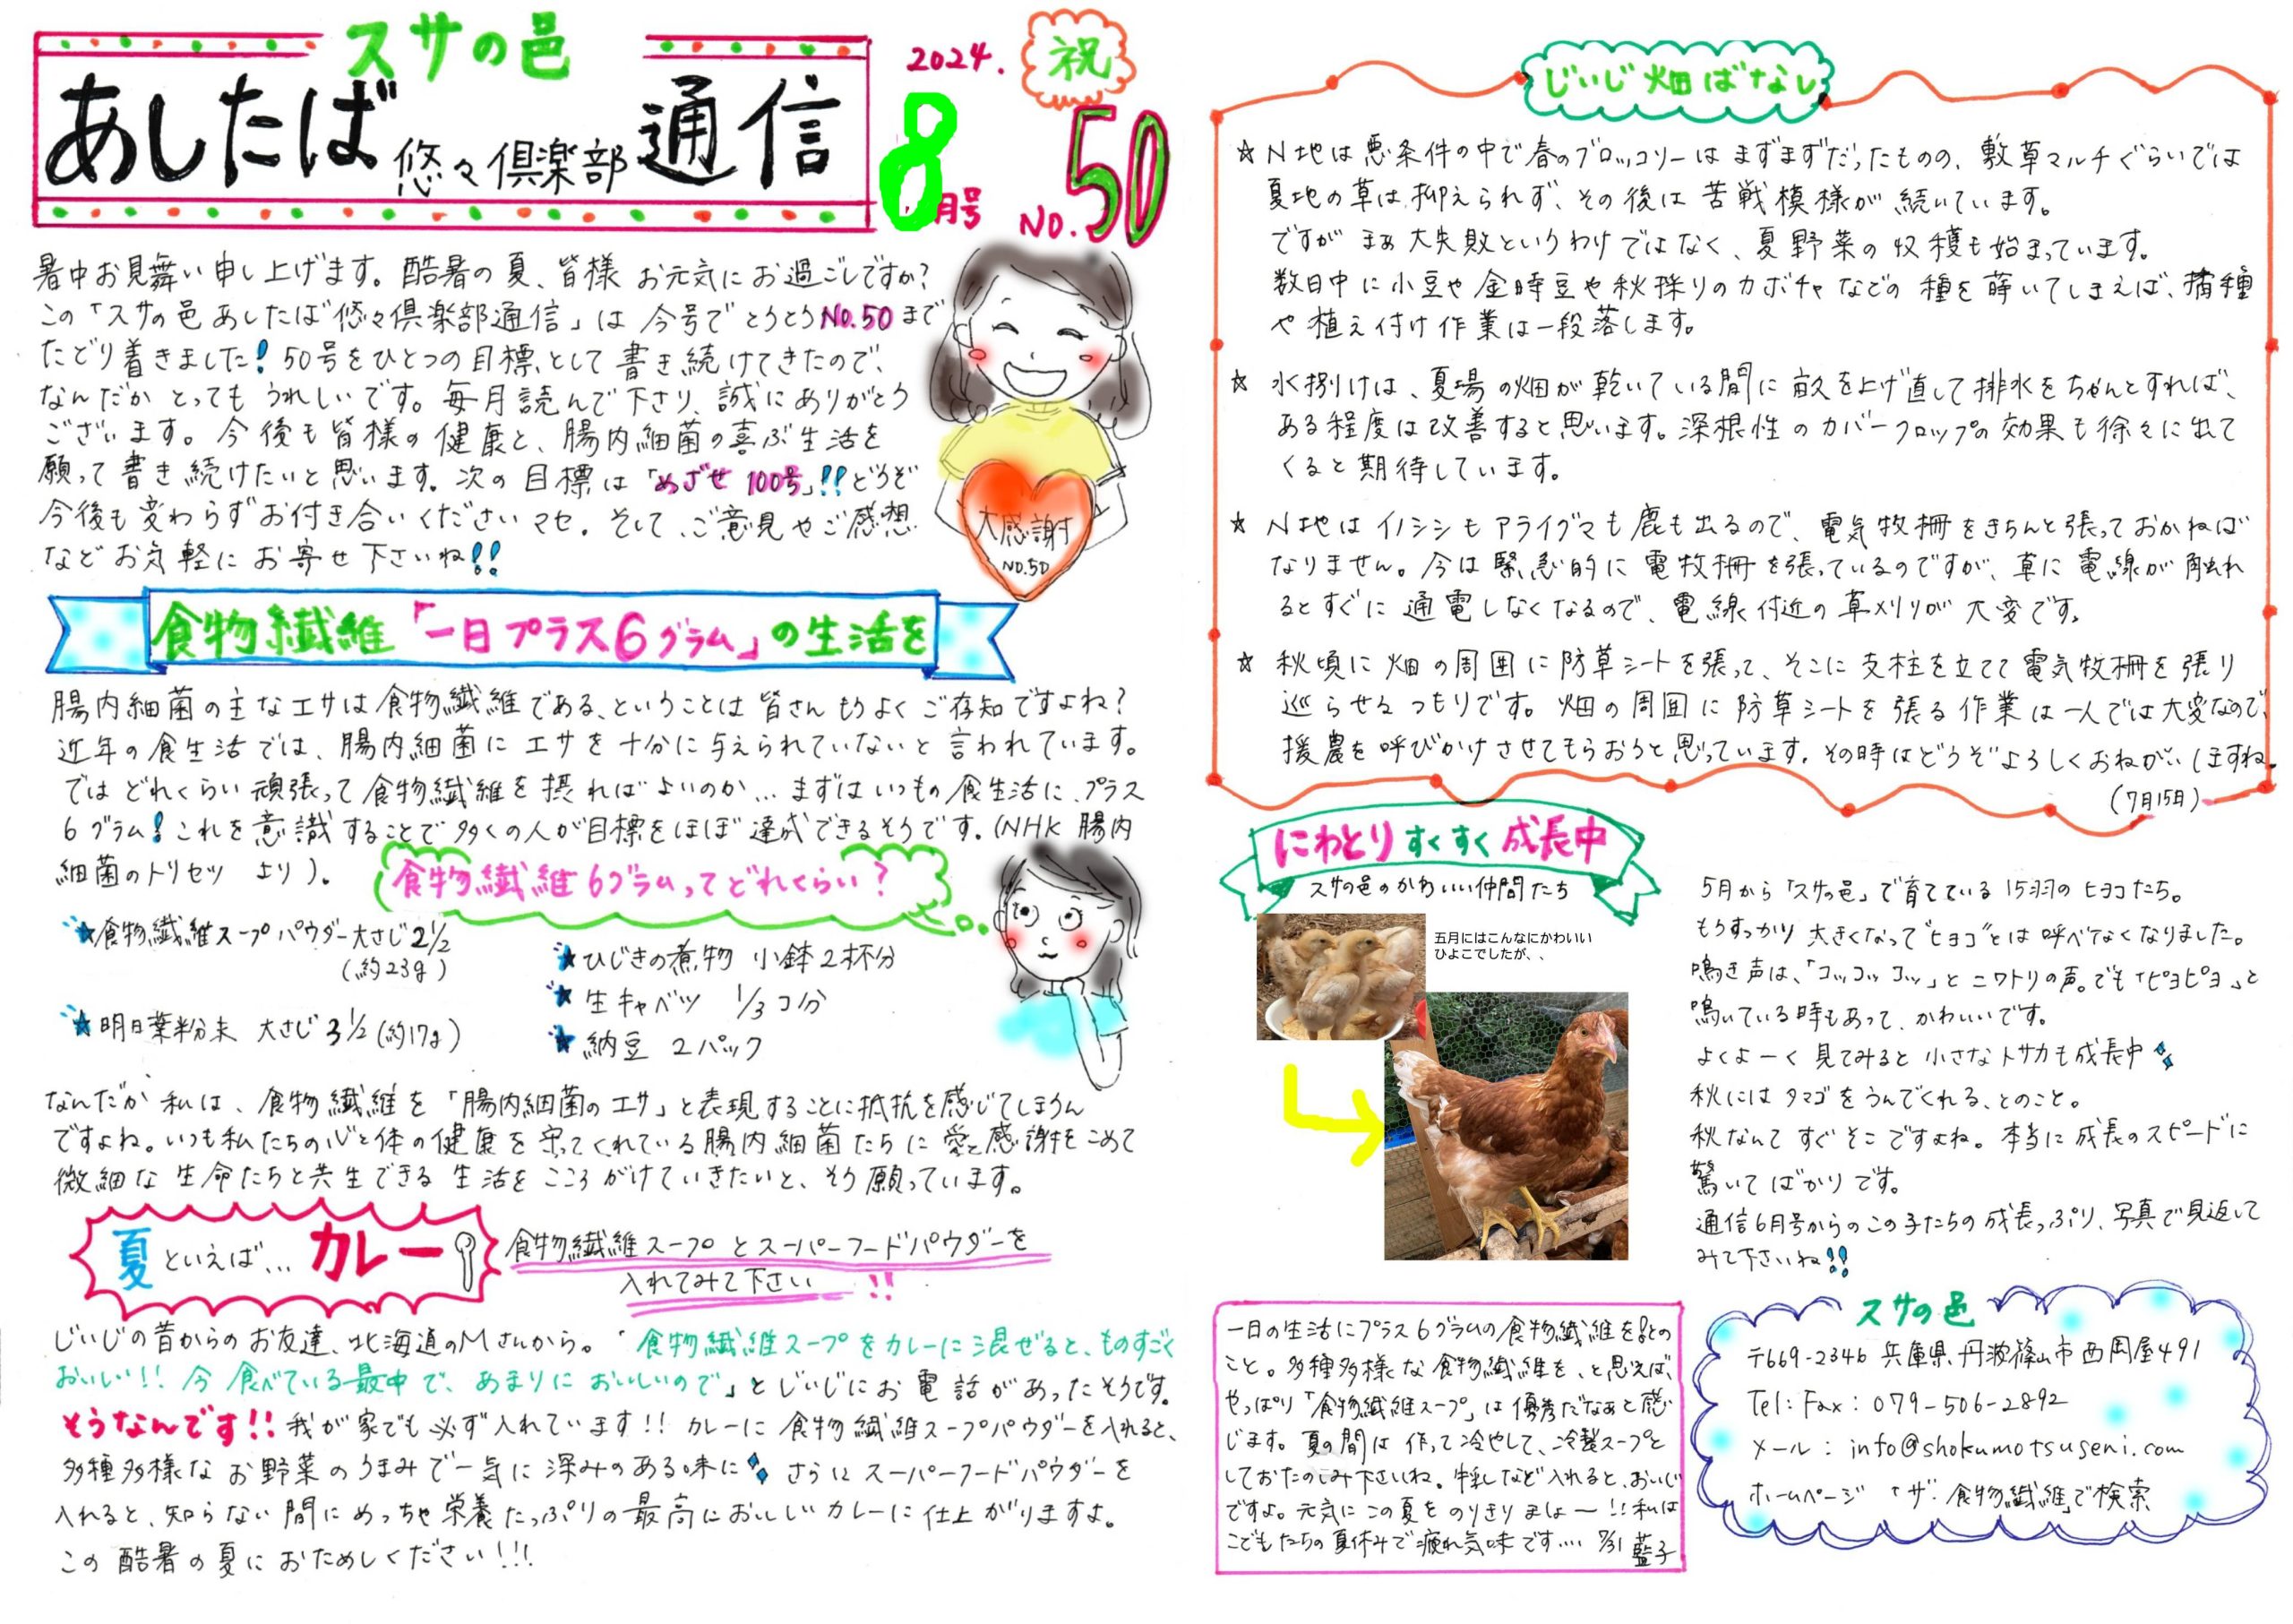 スサの邑
あしたば悠々倶楽部通信
2024.
8月号
祝
NO.50
暑中お見舞い申し上げます。酷暑の夏、皆様 お元気にお過ごしですか?
この「スサの邑あしたば悠々倶楽部通信」は 今号でとうとうNo.50まで
たどり着きました! 50号をひとつの目標として書き続けてきたので、
なんだか とっても うれしいです。毎月読んで下さり、誠にありがとう
ございます。今後も皆様の健康と、腸内細菌の喜ぶ生活を
願って書き続けたいと思います。次の目標は「めざせ100号」!!どうぞ
今後も変わらずお付き合いくださいマセ。そして、ご意見やご感想
などお気軽にお寄せ下さいね!!
大感謝
NO.50
食物繊維「一日プラス6グラム」の生活を
腸内細菌の主なエサは食物繊維である、ということは皆さんもうよくご存知ですよね?
近年の食生活では、腸内細菌にエサを十分に与えられていないと言われています。
ではどれくらい頑張って食物繊維を摂ればよいのか…まずはいつもの食生活に、プラス
6グラム!これを意識することで多くの人が目標をほぼ達成できるそうです。(NHK 腸内
細菌のトリセツ より)。
食物繊維6グラムってどれくらい?
★食物繊維スープパウダー大さじ2½
(約23g)
★明日葉粉末 大さじ3½(約17g)
★ひじきの煮物 小鉢2杯分
★生キャベツ 1/3コ分
★納豆 2パック
なんだか私は、食物繊維を「腸内細菌のエサ」と表現することに抵抗を感じてしまうん
ですよね。いつも私たちの心と体の健康を守ってくれている腸内細菌たちに愛と感謝をこめて
微細な生命たちと共生できる生活をこころがけていきたいと、そう願っています。
夏といえば…カレー
食物繊維スープとスーパーフードパウダーを
入れてみて下さい!!
じいじの昔からのお友達、北海道のMさんから。「食物繊維スープをカレーに混ぜると、ものすごく
おいしい!!今食べている最中で、あまりにおいしいので」とじいじにお電話があったそうです。
そうなんです!!我が家でも必ず入れています!! カレーに食物繊維スープパウダーを入れると、
多種多様なお野菜のうまみで一気に深みのある味に さらにスーパーフードパウダーを
入れると、知らない間にめっちゃ栄養たっぷりの最高においしいカレーに仕上がりますよ。
この酷暑の夏におためしください!!!
じいじ畑ばなし
☆N地は悪条件の中で春のブロッコリーはまずまずだったものの、敷草マルチぐらいでは
夏地の草は抑えられず、その後は苦戦模様が続いています。
ですがまぁ大失敗というわけではなく、夏野菜の収穫も始まっています。
数日中に小豆や金時豆や秋採りのカボチャなどの種を蒔いてしまえば、播種
や植え付け作業は一段落します。
☆水捌けは、夏場の畑が乾いている間に畝を上げ直して排水をちゃんとすれば、
ある程度は改善すると思います。深根性のカバークロップの効果も徐々に出て
くると期待しています。
☆N地はイノシシもアライグマも鹿も出るので、電気牧柵をきちんと張っておかねば
なりません。今は緊急的に電牧柵を張っているのですが、草に電線が触れ
るとすぐに通電しなくなるので、電線付近の草刈りが大変です。
☆秋頃に畑の周囲に防草シートを張って、そこに支柱を立てて電気牧柵を張り
巡らせるつもりです。畑の周囲に防草シートを張る作業は一人では大変なので、
援農を呼びかけさせてもらおうと思っています。その時はどうぞよろしくおねがいしますね。
(7月15日)
にわとりすくすく成長中
スサの邑のかわいい仲間たち
五月にはこんなにかわいい
ひよこでしたが、、
5月から「スサの邑」で育てている15羽のヒヨコたち。
もうすっかり大きくなって"ヒヨコ"とは呼べなくなりました。
鳴き声は、「コッコッコッ」とニワトリの声。でも「ピヨピヨ」と
鳴いている時もあって、かわいいです。
よくよーく見てみると小さなトサカも成長中
秋にはタマゴをうんでくれる、とのこと。
秋なんてすぐそこですよね。本当に成長のスピードに
驚いてばかりです。
通信6月号からのこの子たちの成長っぷり、写真で見返して
みて下さいね!!
一日の生活にプラス6グラムの食物繊維を!との
こと。多種多様な食物繊維を、と思えば、
やっぱり「食物繊維スープ」は優秀だなぁと感
じます。夏の間は作って冷やして、冷製スープと
しておたのしみ下さいね。牛乳など入れると、おいしい
ですよ。元気にこの夏をのりきりましょ〜!!私は
こどもたちの夏休みで疲れ気味です…. 7/31 藍子
スサの邑
〒669-2346 兵庫県丹波篠山市西岡屋491
Tel:Fax:079-506-2892
メール:info@shokumotsuseni.com
ホームページ 「ザ・食物繊維」で検索